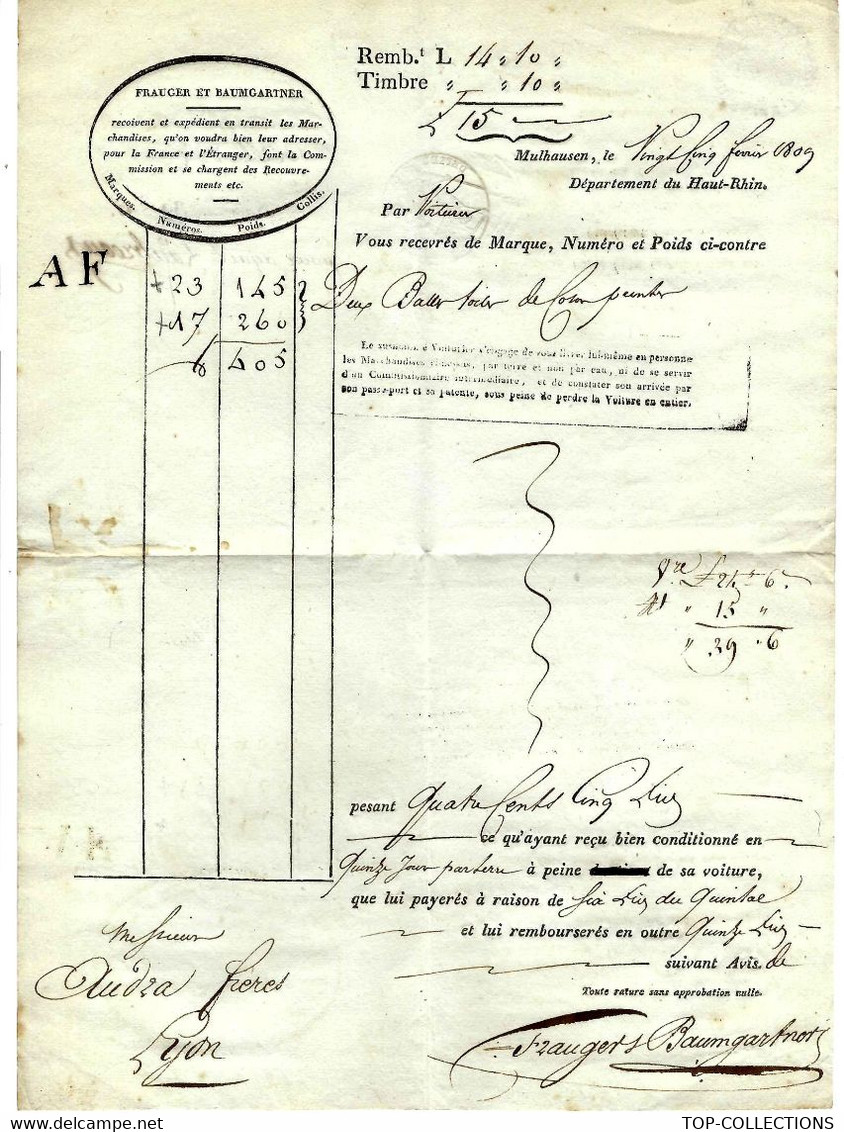 Remb.t L 14 " 10 "
Timbre " " 10 "
L 15
FRAUGER ET BAUMGARTNER
recoivent et expédient en transit les Mar-
chandises, qu'on voudra bien leur adresser,
pour la France et l'Étranger, font la Com-
mission et se chargent des Recouvre-
ments etc.
Mulhausen, le Vingt Cinq fevrier 1809
Département du Haut-Rhin.
Marques. Numéros. Poids. Collis.
Par Voiturier
Vous recevrés de Marque, Numéro et Poids ci-contre
AF
+23 145
+17 260
405
Deux Balles toiles de Coton peintes
Le susnommé Voiturier s'engage de vous livrer lui-même en personne
les Marchandises ci-dessus, par terre et non par eau, ni de se servir
d'un Commissionnaire intermédiaire, et de constater son arrivée par
son passe-port et sa patente, sous peine de perdre la Voiture en entier.
" 15 "
" 39 " 6
pesant Quatre Cents Cinq Livres
ce qu'ayant reçu bien conditionné en
Quinze Jour par terre à peine de sa voiture,
que lui payerés à raison de Six Livres du Quintal
et lui rembourserés en outre Quinze Livres
suivant Avis. de
Toute rature sans approbation nulle.
Messieurs
Audra freres
Lyon
Frauger & Baumgartner
TOP-COLLECTIONS